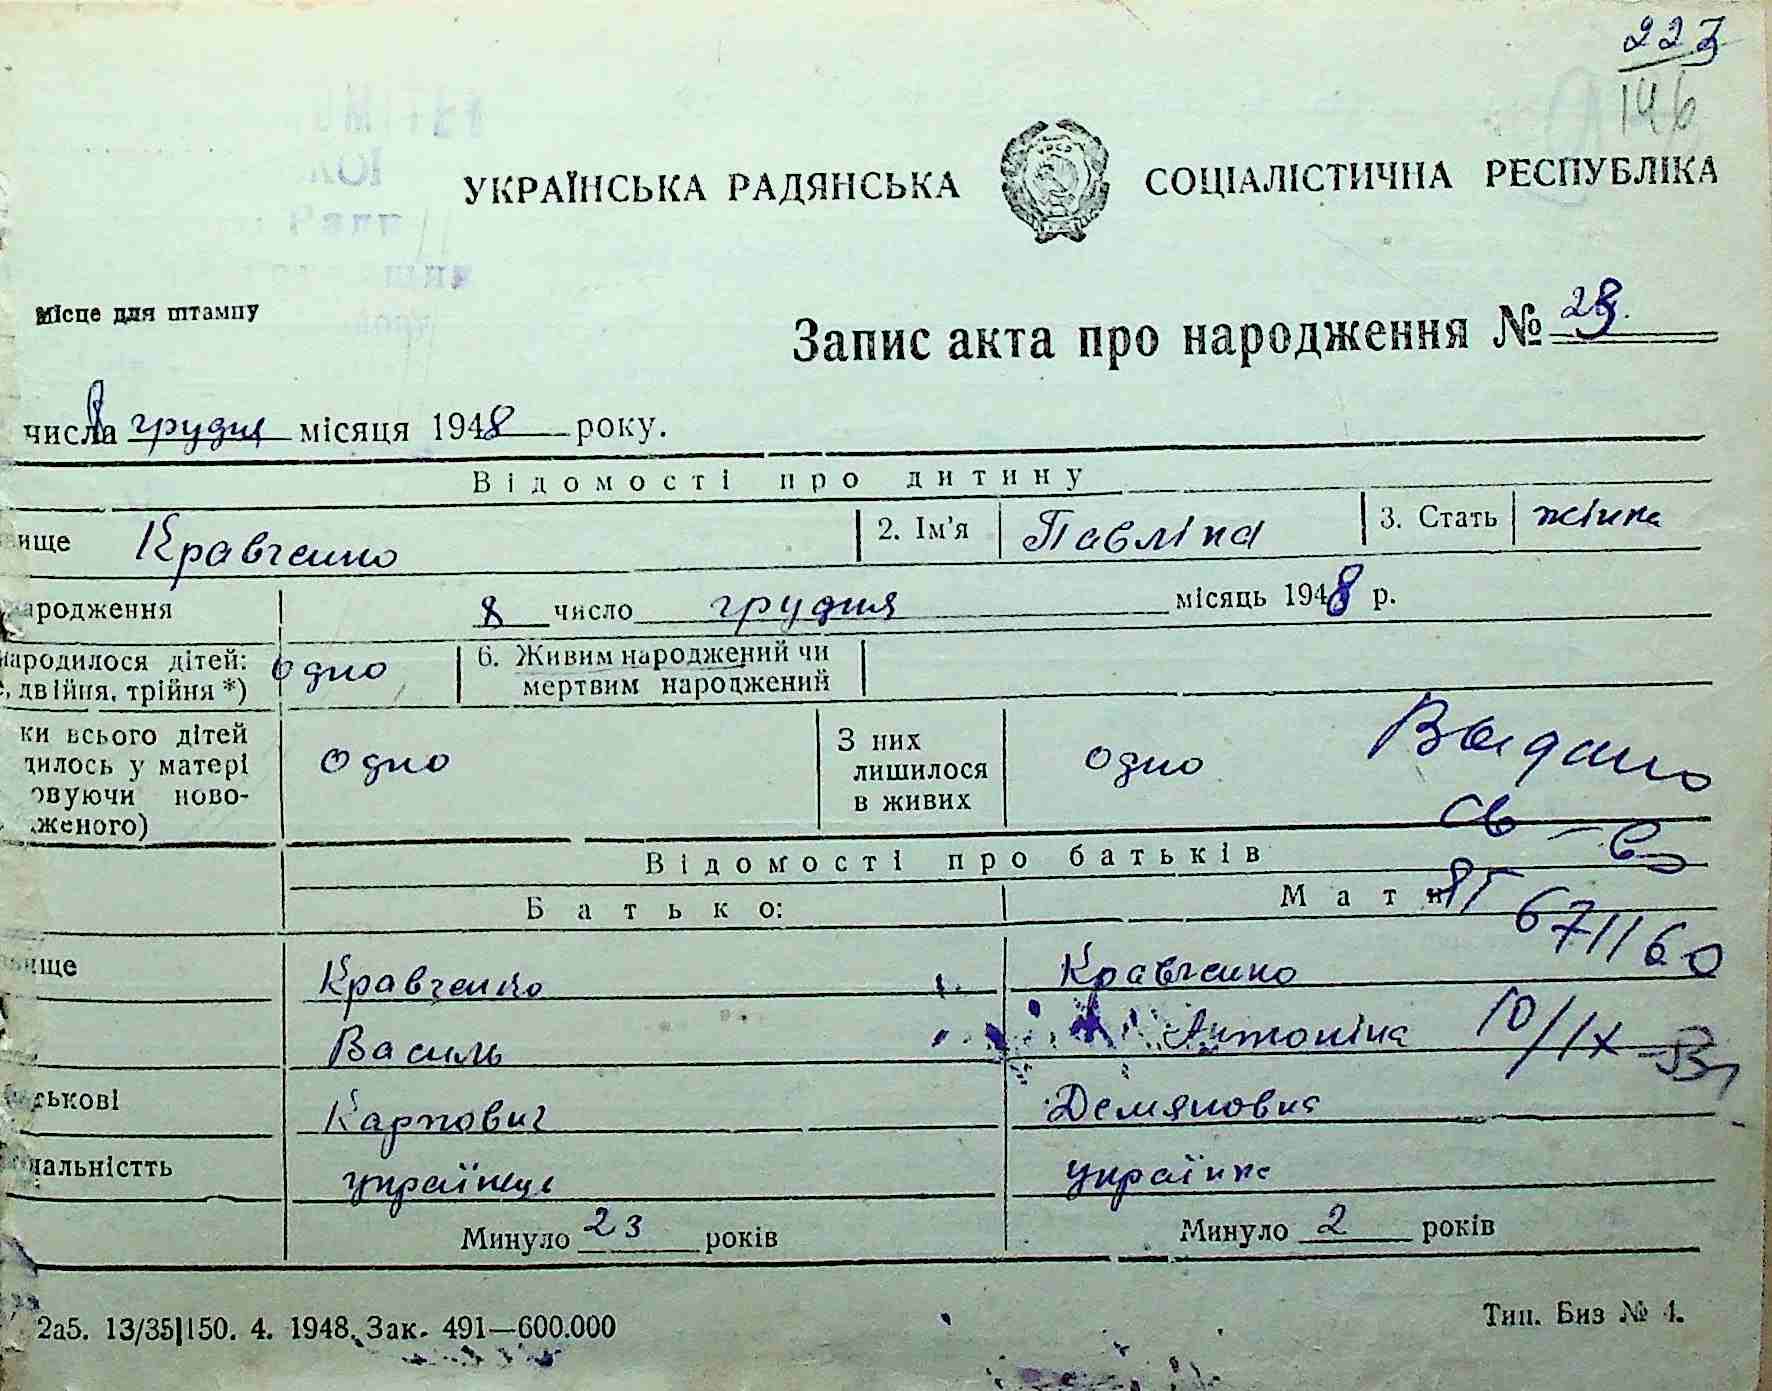 223
146
УКРАЇНСЬКА РАДЯНСЬКА СОЦІАЛІСТИЧНА РЕСПУБЛІКА
Місце для штампу
Запис акта про народження №
8 числа грудня місяця 1948 року.
Відомості про дитину
ище Кравченко 2. Ім'я Павліна 3. Стать жінка
ародження 8 число грудня місяць 1948 р.
народилося дітей: одно 6. Живим народжений чи
, двійня, трійня *) мертвим народжений
ки всього дітей одно З них одно Выдано
илось у матері лишилося
овуючи ново- в живих
женого) св-во
Відомості про батьків
Батько: Мати
671160
ище Кравченко Кравченко
Василь Антоніна 10/IX
ькові Карпович Демяновна
нальністть українець українка
Минуло 23 років Минуло 2 років
2а5. 13/35|150. 4. 1948. Зак. 491—600.000 Тип. Биз № 4.